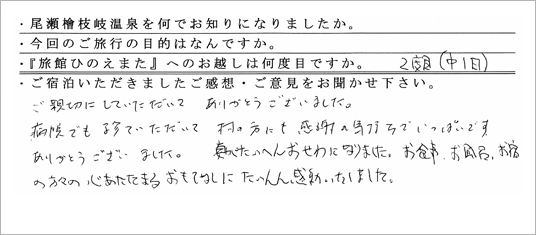 ・尾瀬檜枝岐温泉を何でお知りになりましたか。
・今回のご旅行の目的はなんですか。
・『旅館ひのえまた』へのお越しは何度目ですか。 2度目(中1日)
・ご宿泊いただきましたご感想・ご意見をお聞かせ下さい。
ご親切にしていただいて ありがとうございました。
病院でも診ていただいて 村の方にも感謝の気持ちでいっぱいです
ありがとうござい ました。 たいへんおせわになりました。お食事、お風呂、お宿
の方々の心あたたまるおもてなしにたいへん感動いたしました。